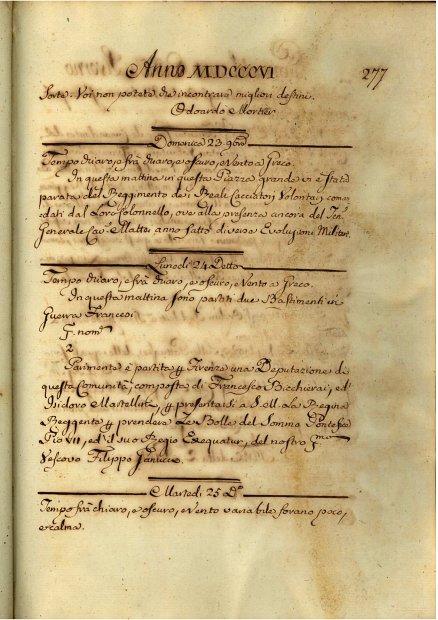 Anno MDCCCVI 277
Sorte. Voi non potete che incontrare migliori destini.
Edoardo Mortier
Domenica 23. 9bre
Tempo chiaro, e frà chiaro, e oscuro, e Vento a Greco.
In questa mattina in questa Piazza grande vi è stata
parata del Reggimento dei Reali Cacciatori Volontarj coman
dati dal Loro Colonnello, ove alla presenza ancora del Ten.
Generale Cav. Mattei anno fatto diverse Evoluzioni Militari.
Lunedì 24 Detto
Tempo chiaro, e frà chiaro, e oscuro, e Vento a Greco.
In questa mattina sono partiti due Bastimenti in
Guerra Francesi
2
Parimente è partita p Firenze una Deputazione di
questa Comunità, composta di Francesco Bicchierai, ed
Isidoro Mastellin, p presentarsi a S. M. La Regina
Reggente p prendere Le Bolle del Sommo Pontefice
Pio VII, ed il suo Regio Exequatur, del nostro
Vescovo Filippo Ganucci.
Martedì 25 Do
Tempo frà chiaro, e oscuro, e Vento variabile forano poco,
e calma.